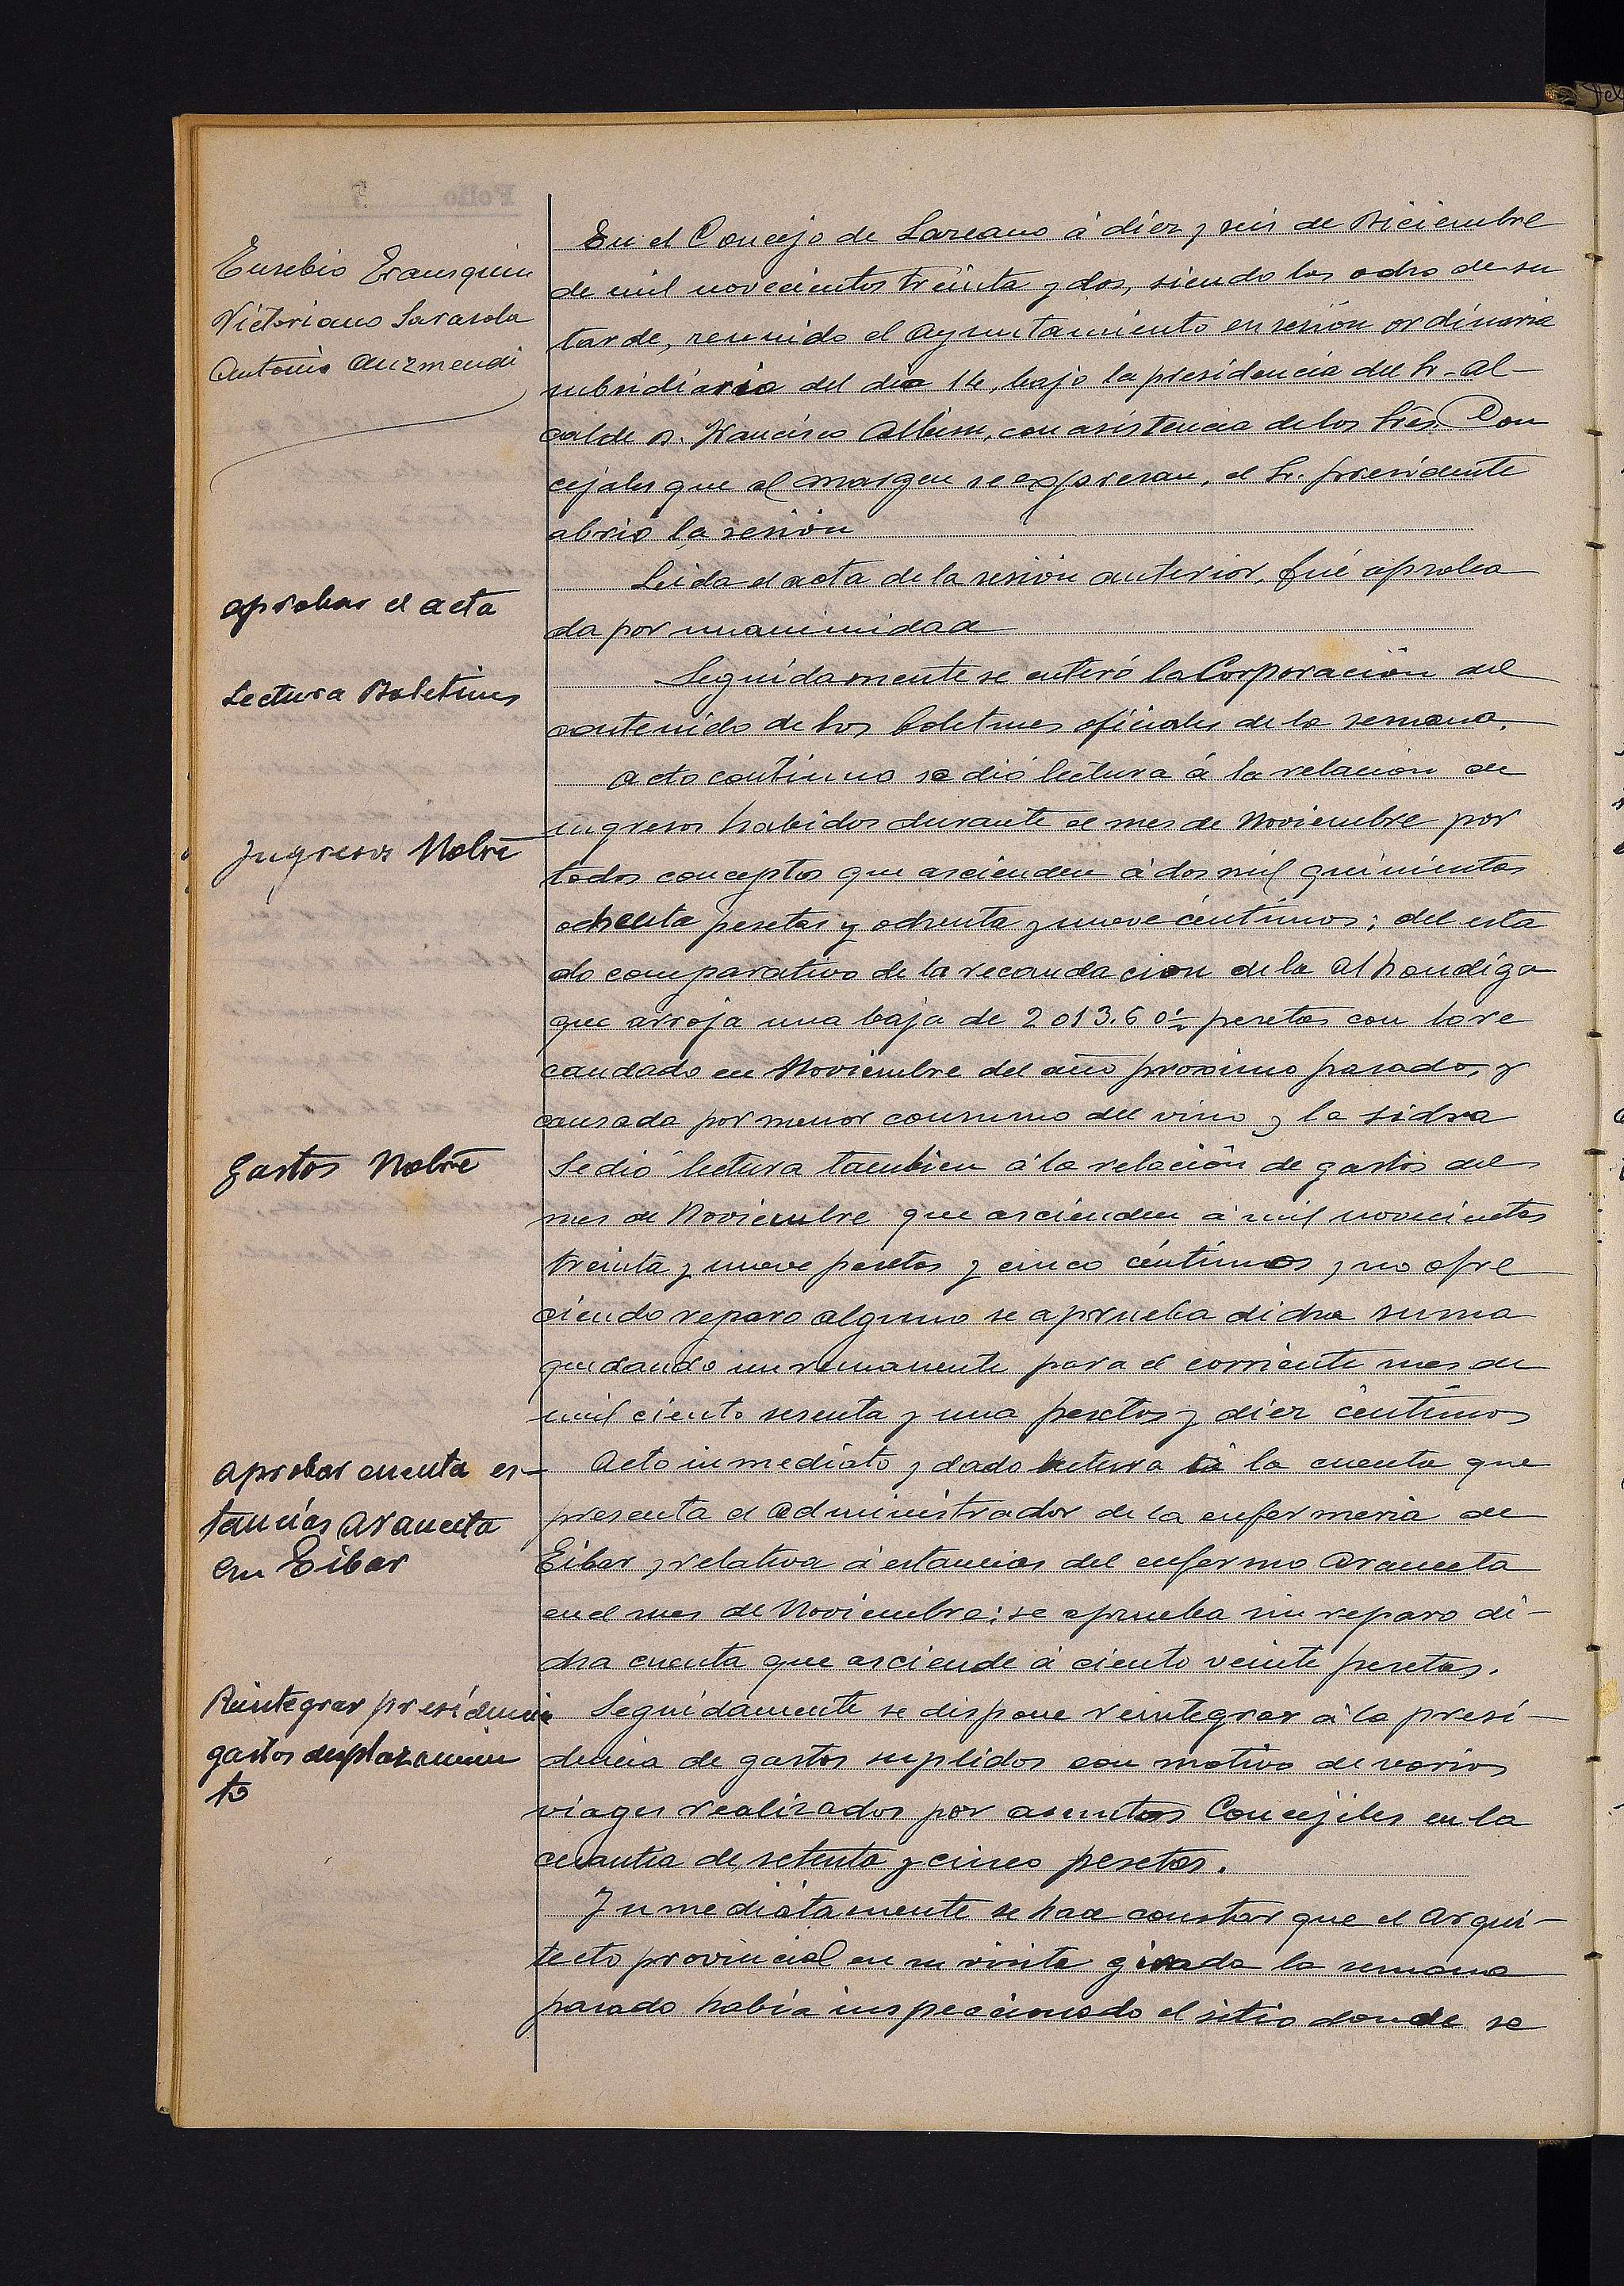 Eusebio Erausquin
Victoriano Sarasola
Antonio Auzmendi
En el Concejo de Lazcano á diez y seis de Diciembre
de mil novecientos treinta y dos, siendo las ocho de su
tarde, reunido el Ayuntamiento en sesión ordinaria
subsidiaria del dia 14, bajo la presidencia del Sr. Al-
calde D. Francisco Albisu, con asistencia de los Sres Con
cejales que al margen se expresan, el Sr. presidente
abrió la sesión
aprobar el acta
Leida el acta de la sesión anterior, fué aproba
da por unanimidad
Lectura Boletines
Seguidamente se enteró la Corporación del
contenido de los boletines oficiales de la semana.
Acto continuo se dió lectura á la relación de
Ingresos Nobre
ingresos habidos durante el mes de Noviembre por
todos conceptos que ascienden á dos mil quinientas
ochenta pesetas y ochenta y nueve céntimos; del esta
do comparativo de la recaudacion de la Alhondiga
que arroja una baja de 2013.60 pesetas con lo re
caudado en Noviembre del año proximo pasado, y
causada por menor consumo del vino y la sidra
Gastos Nobre
Se dió lectura tambien á la relación de gastos del
mes de Noviembre que ascienden á mil novecientas
treinta y nueve pesetas y cinco céntimos y no ofre
ciendo reparo alguno se aprueba dicha suma
quedando un remanente para el corriente mes de
mil ciento sesenta y una pesetas y diez céntimos
aprobar cuenta es-
tancias Araneeta
en Eibar
Acto inmediato y dado lectura á la cuenta que
presenta el administrador de la enfermeria de
Eibar y relativa á estancias del enfermo Araneeta
en el mes de Noviembre; se aprueba sin reparo di-
cha cuenta que asciende á ciento veinte pesetas.
Reintegrar presidencia
gastos desplazamien
to
Seguidamente se dispone reintegrar á la presi-
dencia de gastos suplidos con motivo de varios
viages realizados por asuntos Concejiles en la
cuantia de setenta y cinco pesetas.
Inmediatamente se hace constar que el Arqui-
tecto provincial en su visita girada la semana
pasada había inspeccionado el sitio donde se